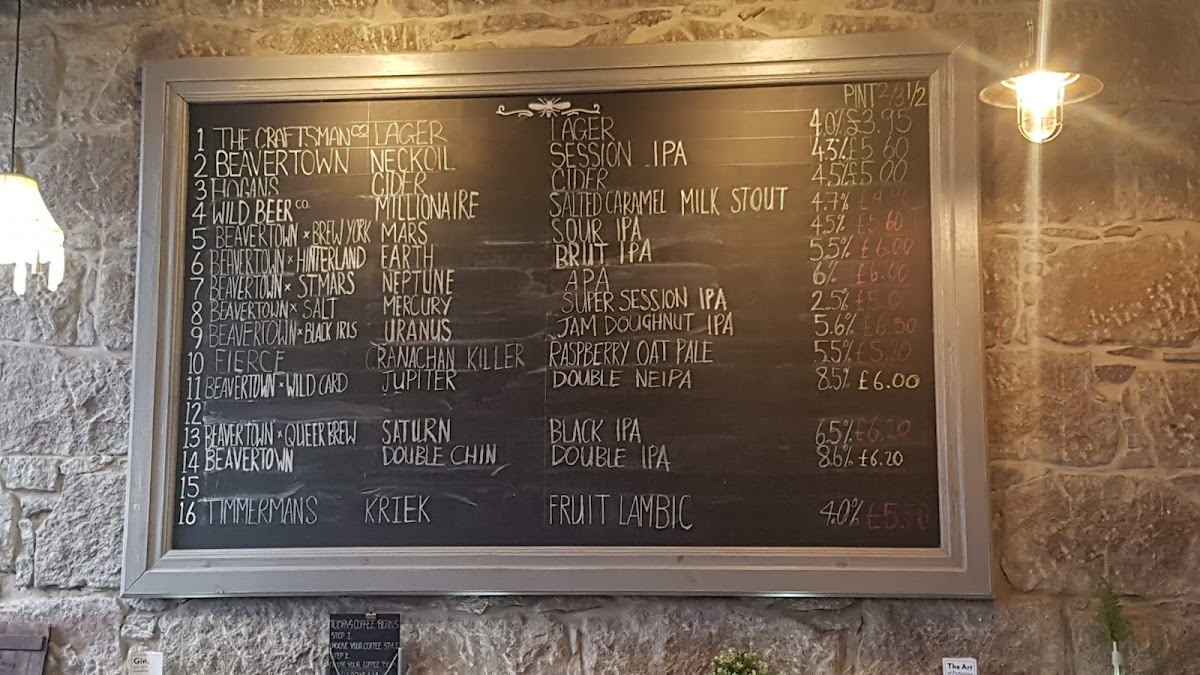 PINT 2/3 1/2
1 THE CRAFTSMAN CO LAGER LAGER 4.0% £3.95
2 BEAVERTOWN NECKOIL SESSION IPA 4.3% £5.60
3 HOGANS CIDER CIDER 4.5% £5.00
4 WILD BEER CO. MILLIONAIRE SALTED CARAMEL MILK STOUT 4.7%
5 BEAVERTOWN × BREW YORK MARS SOUR IPA 4.5% £5.60
6 BEAVERTOWN × HINTERLAND EARTH BRUT IPA 5.5% £6.00
7 BEAVERTOWN × ST MARS NEPTUNE APA 6% £6.00
8 BEAVERTOWN × SALT MERCURY SUPER SESSION IPA 2.5% £5.0
9 BEAVERTOWN × BLACK IRIS URANUS JAM DOUGHNUT IPA 5.6% £6.50
10 FIERCE CRANACHAN KILLER RASPBERRY OAT PALE 5.5% £5.20
11 BEAVERTOWN × WILD CARD JUPITER DOUBLE NEIPA 8.5% £6.00
12
13 BEAVERTOWN × QUEER BREW SATURN BLACK IPA 6.5% £6.20
14 BEAVERTOWN DOUBLE CHIN DOUBLE IPA 8.6% £6.20
15
16 TIMMERMANS KRIEK FRUIT LAMBIC 4.0%
TODAYS COFFEE BEANS
STEP 1.
CHOOSE YOUR COFFEE STYLE
STEP 2.
CHOOSE YOUR COFFEE
Gin.
The Art